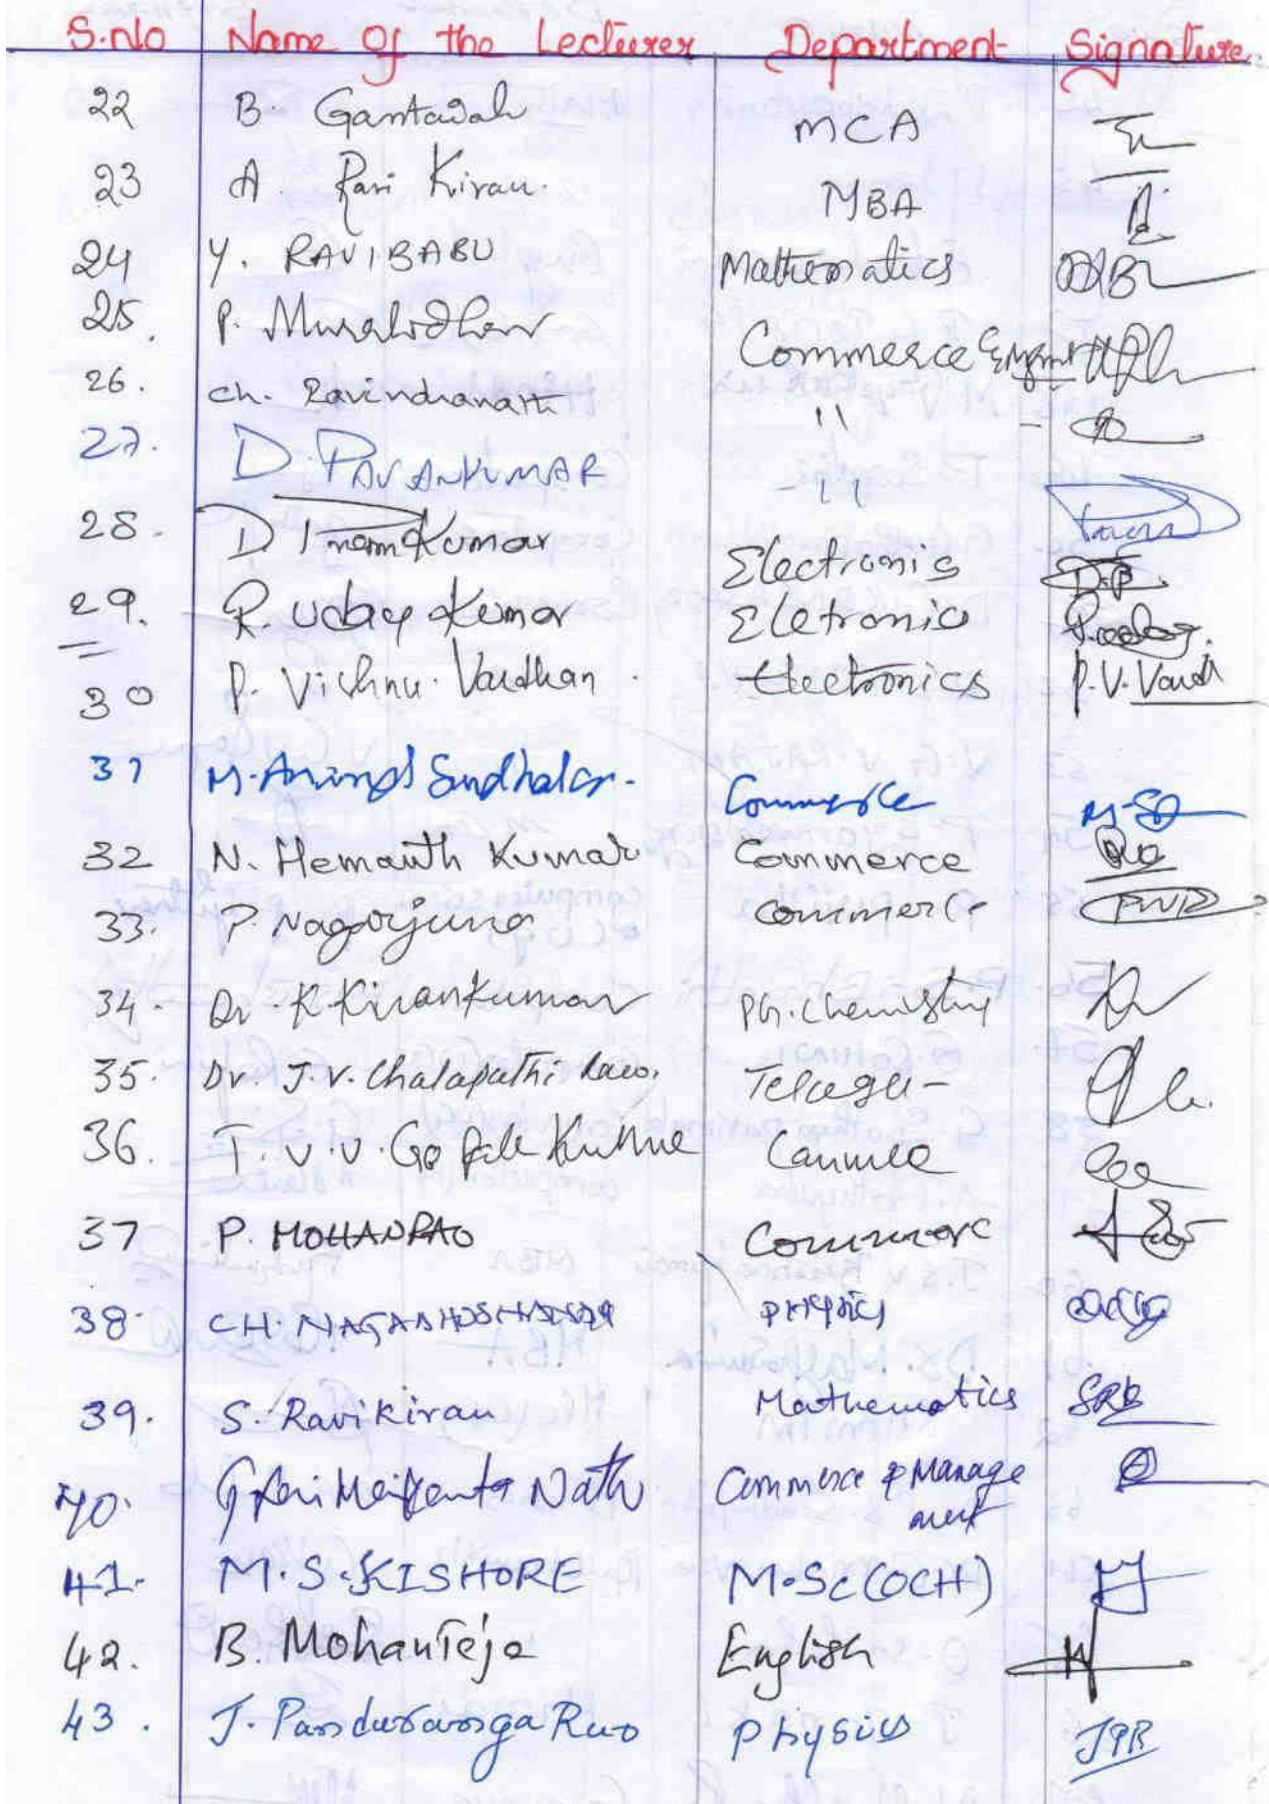 S.No Name of the Lecturer Department Signature
22 B. MCA
23 A. Ravi Kiran. MBA
24 Y. RAVIBABU Mathematics
25. P. Muralidhar Commerce & Mgmt
26. Ch. Ravindranath "
27. D. PAVANKUMAR - "
28. D Prem Kumar Electronis D.P
29. R. Uday Kumar Eletronic
30 P. Vishnu Vardhan. Electronics P.V.Vardh
31 M. Anand Sudhakar. Commerce
32 N. Hemanth Kumar Commerce
33. P. Nagarjuna Commerce PNR
34. Dr. K Kirankumar Ph.chemistry
35. Dr. J.V. Chalapathi Rao. Telugu -
36. T.V.V. Gopala Kumar
37 P. MOHANRAO Commerc
38. CH. Physics
39. S. Ravikiran Mathematics SRK
40. G Nath Commerce & Manage
ment
41. M.S. KISHORE M.Sc(OCH)
42. B. MohanTeja English
43. J. Panduranga Rao Physics JPR